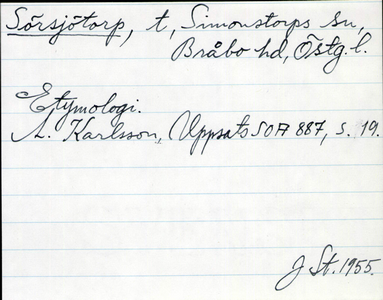 Sörsjötorp, t, Simonstorps sn,
Bråbo hd, Östg. l.
Etymologi.
A. Karlsson, Uppsats SOA 887, s. 19.
J St. 1955.